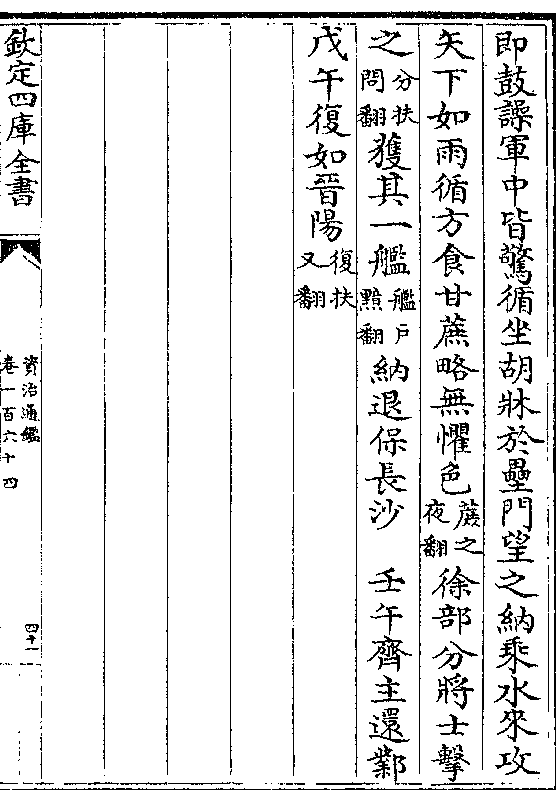 即鼓譟軍中皆驚循坐胡牀於壘門望之納乘水來攻
矢下如雨循方食甘蔗略無懼色蔗之夜翻徐部分將士擊
之分扶問翻獲其一艦艦户黯翻納退保長沙 壬午齊主還鄴
戊午復如晉陽復扶又翻
欽定四庫全書
資治通鑑
卷一百六十四
四十一